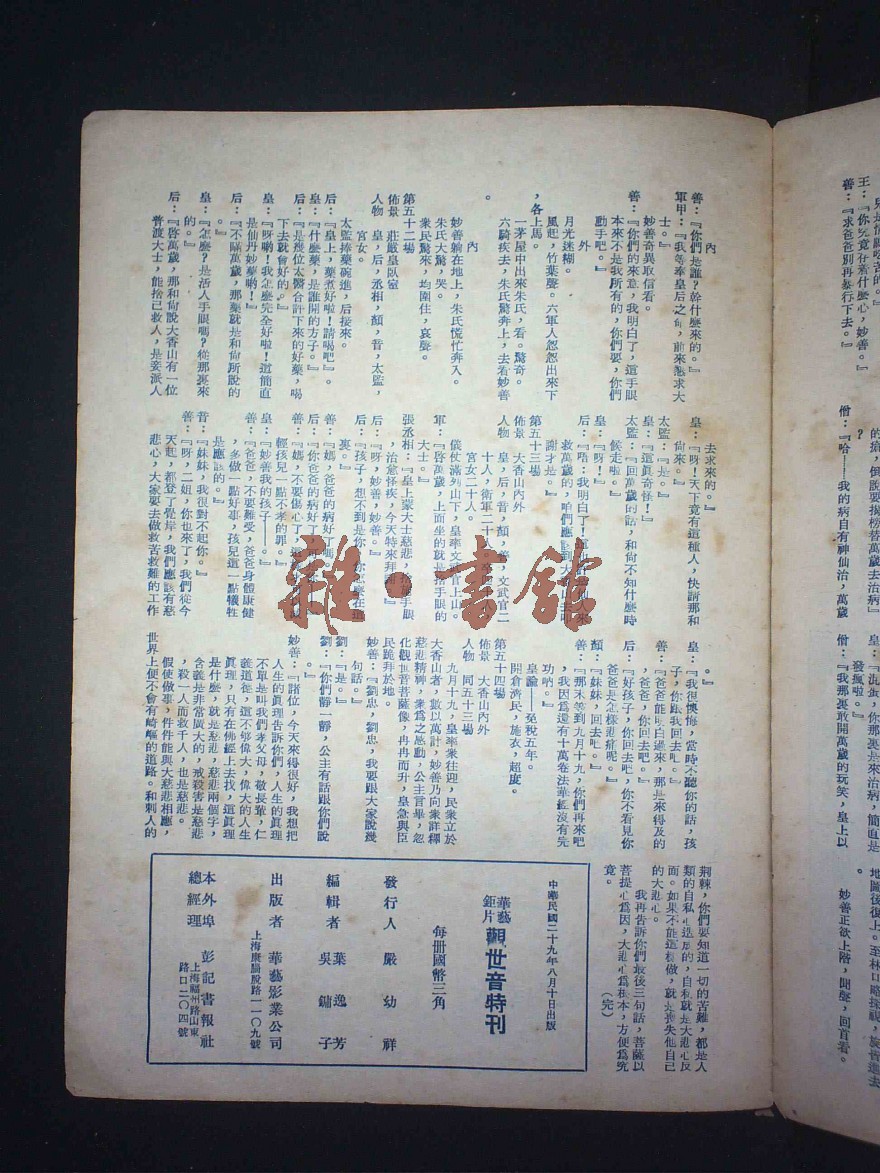 王：『你究竟存着什麼心，妙善。』
善：『求爸爸別再暴行下去。』
的瘡，倒說要揭榜替萬歲去治病』
？
僧：『哈——我的病自有神仙治，萬歲
發瘋啦。』
僧：『我那裏敢開萬歲的玩笑，皇上以
。
妙善正欲上階，聞聲，回首看。
內
善：『你們是誰？幹什麼來的。』
軍甲：『我等奉皇后之命，前來懇求大
士。』
妙善奇異取信看。
善：『你們的來意，我明白了，這手眼
本來不是我所有的，你們要，你們
動手吧。』
外
月光迷糊。
風起，竹葉聲。六軍人忽忽出來下
，各上馬。
一茅屋中出來朱氏，看。驚奇。
六騎疾去，朱氏驚奔上，去看妙善
。
內
妙善躺在地上，朱氏慌忙奔入。
朱氏大驚，哭。
衆民驚來，均圍住，哀聲。
第五十二場
佈景　莊嚴皇臥室
人物　皇，后，丞相，顏，音，太監，
宮女。
太監捧藥碗進，后接來。
后：『皇上，藥煮好啦！請喝吧』。
皇：『什麼藥，是誰開的方子。』
后：『是幾位太醫合計下來的好藥，喝
下去就會好的。』
皇：『呀喲！我怎麼完全好啦！這簡直
是仙丹妙藥喲！』
后：『不瞞萬歲，那藥就是和尙所說的
。』
皇：『怎麼？是活人手眼嗎？從那裏來
的。』
后：『啓萬歲，那和尙說大香山有一位
普渡大士，能捨己救人，是妾派人
去求來的。』
皇：『呀！天下竟有這種人，快請那和
尙來。』
太監：『是。』
皇：『這眞奇怪！』
太監：『回萬歲的話，和尙不知什麼時
候走啦。』
皇：『呀！』
謝才是。』
第五十三場
佈景　大香山內外
人物　皇，后，音，顏，善，文武官二
宮女二十人。
大士。』
張丞相：『皇上蒙大士慈悲，
，治愈怪疾，今天特來拜謝
后：『呀，妙善，妙善。』
裏。』
善：『媽，爸爸的病好了嗎
后：『你爸爸的病好了
善：『媽，不要傷心了，
輕孩兒一點不孝的罪。』
皇：『妙善我的孩子——。』
善：『爸爸，不要難受，爸爸身體康健
，多做一點好事，孩兒這一點犧牲
是應該的。』
音：『妹妹，我很對不起你。』
善：『呀，二姐，你也來了，我們從今
天起，都登了覺岸，我們應該有慈
悲心，大家要去做救苦救難的工作
。』
皇：『我很懊悔，當時不聽你的話，孩
子，你跟我回去吧。』
善：『爸爸能明白過來，那是來得及的
，爸爸，你回去吧。』
后：『好孩子，你回去吧，你不看見你
爸爸是怎樣悲痛呢。』
顏：『妹妹，回去吧。』
善：『那末等到九月十九，你們再來吧
，我因爲還有十萬卷法華經沒有完
功吶。』
皇諭——免稅五年。
開倉濟民，施衣，超度。
第五十四場
佈景　大香山內外
人物　同五十三場
九月十九，皇率衆往迎，民衆立於
大香山者，數以萬計，妙善乃向衆詳釋
慈悲精神，衆爲之感動，公主言畢，忽
化觀世音菩薩像，冉冉而升，皇急與臣
民跪拜於地。
妙善：『劉忠，劉忠，我要跟大家說幾
句話。』
劉：『是。』
劉：『你們靜一靜，公主有話跟你們說
。』
妙善：『諸位，今天來得很好，我想把
人生的眞理告訴你們，人生的眞理
不單是叫我們孝父母，敬長輩，仁
義道德，這不够偉大，偉大的人生
眞理，只有在佛經上去找，這眞理
是什麼，就是慈悲，慈悲兩個字，
含義是非常廣大的，戒殺害是慈悲
，殺一人而救千人，也是慈悲。
假使做事，件件能與大慈悲相應，
世界上便不會有崎嶇的道路。和刺人的
荆棘，你們要知道一切的苦難，都是人
類的自私心造成的，自私就是大悲心反
面。如果不能這樣做，就是喪失他自己
的大悲心。
我再告訴你們最後三句話，菩薩以
菩提心爲因，大悲心爲根本，方便爲究
竟。
（完）
中華民國二十九年八月十日出版
華藝鉅片　觀世音特刊
每册國幣三角
發行人　嚴幼祥
編輯者　葉逸芳
吳鏞子
出版者　華藝影業公司
上海廣腦脫路一一〇九號
本外埠總經理　彭記書報社
上海福州路山東路口二〇四號
雜·書館